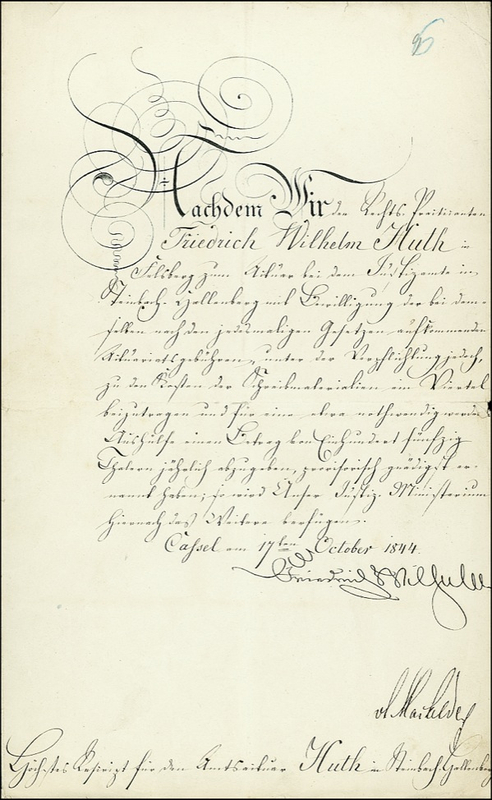 Nachdem Wir den Rechts-Practicanten
Friedrich Wilhelm Huth in
Felsberg zum Aktuar bei dem Justizamte in
Steinbach-Hallenberg mit Bewilligung der bei dem-
selben nach den jedesmaligen Gesetzen aufkommenden
Aktuariatsgebühren, unter der Verpflichtung jedoch,
zu den Kosten der Schreibmaterialien ein Viertel
beizutragen und für eine etwa nothwendig werdende
Aushülfe einen Betrag von Einhundert fünfzig
Thalern jährlich abzugeben, provisorisch gnädigst er-
nannt haben; so wird Unser Justiz-Ministerium
hiernach das Weitere verfügen.
Cassel am 17ten October 1844.
Friedrich Wilhelm
Höchstes Rescript für den Amtsaktuar Huth in Steinbach-Hallenberg